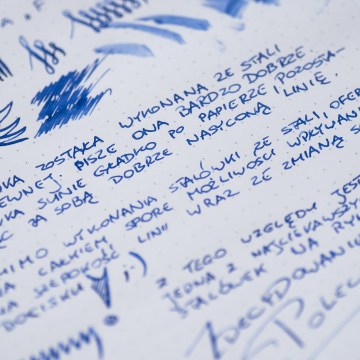 A.F
WKA ZOSTAŁA WYKONANA ZE STALI
EWNEJ. PISZE ONA BARDZO DOBRZE.
WKA SUNIE GŁADKO PO PAPIERZE POZOSTA-
C ZA SOBĄ DOBRZE NASYCONĄ LINIĘ.
MIMO WYKONANIA STALÓWKI ZE STALI, OFER
NA CAŁKIEM SPORE MOŻLIWOŚCI WPŁYWANI
NA SZEROKOŚĆ LINII WRAZ ZE ZMIANĄ
DOCISKU! ;-)
Z TEGO WZGLĘDU JEST
JEDNĄ Z NAJCIEKAWSZY
STALÓWEK NA RY
ZDECYDOWANIE
POLEC